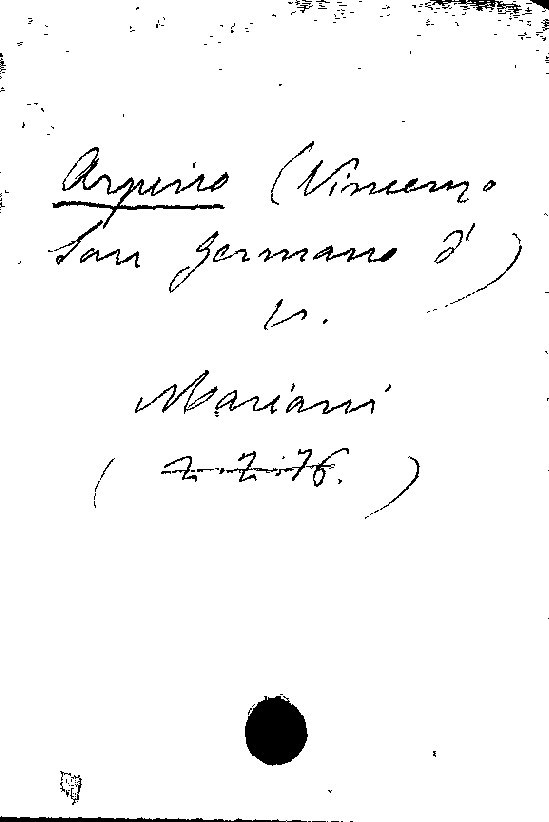 Arpino (Vincenzo
San Germano d')
v.
Mariani
( Z. Z. 76. )